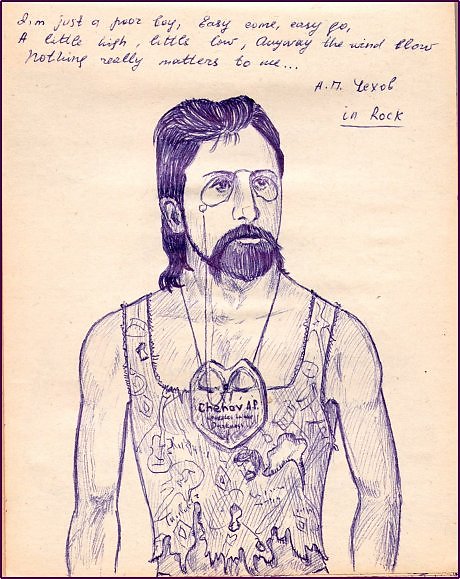 I,m just a poor boy, Easy come, easy go,
A little high, little low, Anyway the wind blow
Nothing really matters to me...
А.П. Чехов
in Rock
Chehov A.P.
Darkness